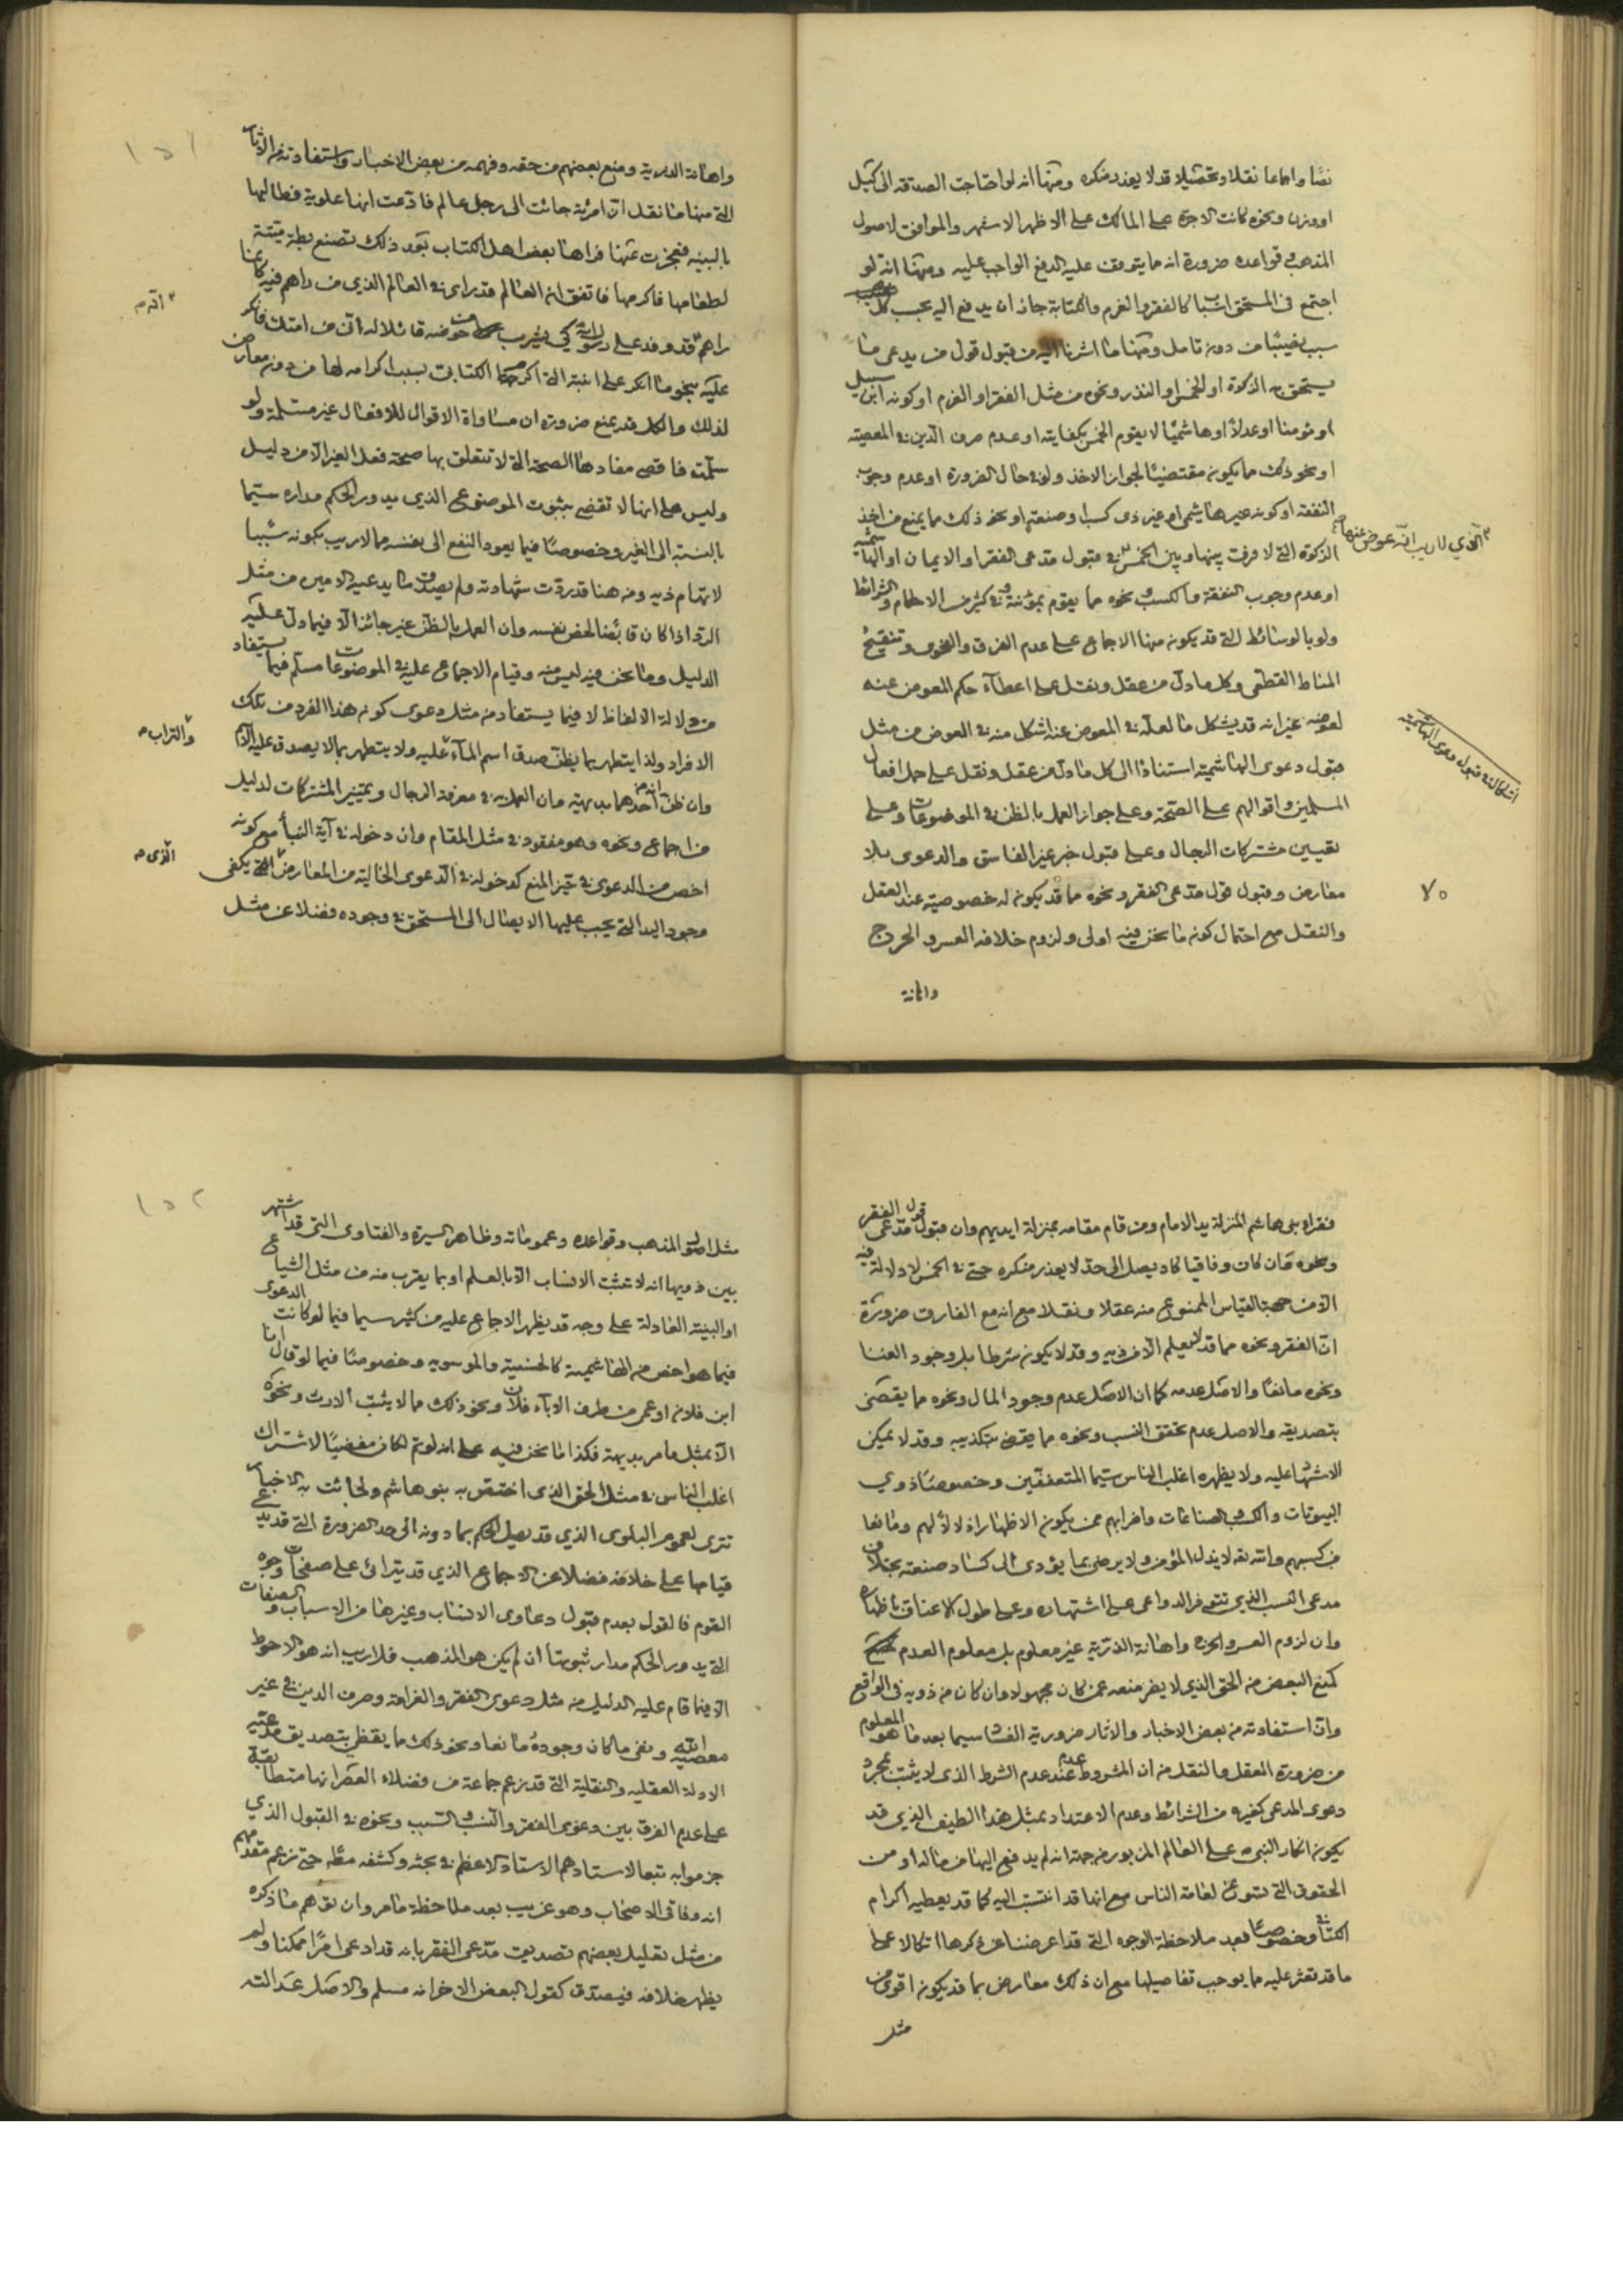 نصا واجماعا نقلا وتحصيلا قد لا يعذر منكره ومنها انه لو احتاجت الصدقه الى كيل
او وزن ونحوه كانت الاجرة على المالك على الاظهر الاشهر والموافق لاصول
المذهب وقواعده ضرورة انه مما يتوقف عليه الدفع الواجب عليه ومنها انه لو
اجتمع فى المستحق اسباب كالفقر والغرم والكتابة جاز ان يدفع اليه بحسب كل
سبب نصيبا من دون تامل ومنها ما اشرنا اليه من قبول قول من يدعى ما
يستحق به الزكوة او الخمس او النذر ونحوه من مثل الفقر او الغرم او كونه ابن سبيل
او مؤمنا او عدلا او هاشميا لا يقوم الخمس بكفايته او عدم صرف الدين فى المعصيته
او نحو ذلك مما يكون مقتضيا لجواز الاخذ ولو فى حال الضرورة او عدم وجوب
النفقه او كونه غير هاشمى او غير ذى كسب او صنعة او نحو ذلك مما يمنع من اخذ
الزكوة التى لا فرق بينها وبين الخمس فى قبول مدعى الفقر او الايمان او الهاشميه
الذي لا ريب انه عوض عنها
او عدم وجوب النفقة والكسب ونحوه مما يقوم بمؤنته وفى كثير من الاحكام والشرائط
ولو بالوسائط التى قد يكون منها الاجماع على عدم الفرق والفحوى وتنقيح
المناط القطعى وكل ما دل من عقل ونقل على اعطاء حكم المعوض عنه
لعوضه غير انه قد يشكل ما لعله فى المعوض عنه اشكل منه فى العوض من مثل
اشكال فى قبول دعوى الهاشمية
قبول دعوى الهاشمية استنادا الى كل ما دل من عقل ونقل على حمل افعال
المسلمين واقوالهم على الصحة وعلى جواز العمل بالظن فى الموضوعات وعلى
تعيين مشتركات الرجال وعلى قبول خبر غير الفاسق والدعوى بلا
معارض وقبول قول مدعى الفقر ونحوه مما قد يكون له خصوصيته عند العقل
٧٠
والنقل مع احتمال كونه ما نحن فيه اولى ولزوم خلافه العسر والحرج
واهانة
١٥١
واهانة الذرية ومنع بعضهم من حقه وفهمه من بعض الاخبار واستفادته من الاثار
التى منها ما نقل ان امرئة جائت الى رجل عالم فادعت انها علوية فطالبها
بالبينه فعجزت عنها فراها بعض اهل الكتاب بعد ذلك تصنع بطة ميتة
لطعامها فاكرمها فاتفق ان العالم قد راى فى العالم الذي من راهم فيه كانما
انه م
راهم قد وفد على رسول الله كي يشرب من حوضه قائلا له انى من امتك فانكر
عليه بنحو ما انكر على ابنته التى اكرمها الكتابى بسبب اكرامه لها من دون معارض
لذلك والكل قد يمنع ضرورة ان مساواة الاقوال للافعال غير مسلمة ولو
سلمت فاقصى مفادها الصحة التى لا تتعلق بها صحة فعل الغير الا من دليل
وليس على انها لا تقضى بثبوت الموضوع الذي يدور الحكم مداره سيما
بالنسبة الى الغير وخصوصا فيما يعود النفع الى نفسه مما لا ريب بكونه سببا
لاتهام ذيه ومن هنا قد ردت شهادته ولم يصدق ما يدعيه الامين من مثل
الرد اذا كان قابضا لحض نفسه وان العمل بالظن غير جائز الا فيما دل عليه
الدليل وما نحن فيه ليس منه وقيام الاجماع عليه فى الموضوعات مسلم فيما يستفاد
من دلالة الالفاظ لا فيما يستفاد من مثل دعوى كونه هذا الفرد من تلك
والتراب م
الافراد ولذا يتطهر بما يظن صدق اسم الماء عليه ولا يتطهر بما لا يصدق عليه الا
وان ظن انه احدهما بديهته وان العمل به فى معرفة الرجال وتمييز المشتركات لدليل
من اجماع ونحوه وهو مفقود فى مثل المقام وان دخوله فى آية النبأ مع كونه
الذى م
اخص من الدعوى فى حيز المنع كدخوله فى الدعوى الخاليته من المعارض التى يكفى
وجود اليد التى يجب عليها الايصال الى المستحق فى وجوده فضلا عن مثل
فقراء بنى هاشم المنزلة يد الامام ومن قام مقامه بمنزلة ايديهم وان قبول قول مدعى الفقر
ونحوه وان كان وفاقيا كاد يصل الى حد لا يعذر منكره حتى فى الخمس لا دلالة فيه
الا من جهة القياس الممنوع منه عقلا ونقلا مع انه مع الفارق ضرورة
ان الفقر ونحوه مما قد لا يعلم الا من ذيه وقد لا يكون شرطا بل وجود الغنا
ونحوه مانعا والاصل عدمه كما ان الاصل عدم وجود المال ونحوه مما يقضى
بتصديقه والاصل عدم تحقق النسب ونحوه مما يقضى بتكذيبه وقد لا يمكن
الاشهاد عليه ولا يظهره اغلب الناس سيما المتعففين وخصوصا ذوي
البيوتات والكسب والصناعات واضرابهم ممن يكون الاظهار اذلالا لهم ومانعا
من كسبهم والله تع لا يذل المؤمن ولا يرضى بما يؤدى الى كساد صنعته بخلاف
مدعى النسب الذي تتوفر الدواعى على اشتهاره وعلى طول الاعناق باظهاره
وان لزوم العسر والحرج واهانة الذرية غير معلوم بل معلوم العدم
كمنع البعض من الحق الذي لا يضر منعه عمن كان مجهولا وان كان من ذويه فى الواقع
وان استفادته من بعض الاخبار والاثار ضرورية الفساد سيما بعد ما هو المعلوم
من ضرورة العقل والنقل من ان المشروط عدم عند عدم الشرط الذى لا يثبت بمجرد
دعوى المدعى كغيره من الشرائط وعدم الاعتداد بمثل هذا الطيف الذي قد
يكون انكار النبى ص على العالم المزبور من جهة انه لم يدفع اليها من ماله او من
الحقوق التى تسوغ لعامة الناس مع انها قد انتسبت اليه كما قد يعطيه اكرام
الكتابى وخصوصا بعد ملاحظة الوجوه التى قد اعرضنا عن ذكرها اتكالا على
ما قد تعثر عليه مما يوجب تفاصيلها مع ان ذلك معارض بما قد يكون اقوى من
مثل
١٥٢
مثل اصول المذهب وقواعده وعموماته وظاهر السيرة والفتاوى التى قد اشتهر
بين ذويها انه لا تثبت الانساب الا بالعلم او بما يقرب منه من مثل الشياع
او البينه العادلة على وجه قد يظهر الاجماع عليه من كثير سيما فيما لو كانت الدعوى
فيما هو اخص من الهاشمية كالحسنية والموسويه وخصوصا فيما لو قال انا
ابن فلان او عمى من طرف الاباء فلان ونحو ذلك مما لا يثبت الارث ونحوه
الا بمثل ما مر بديهة فكذا ما نحن فيه على انه لو تم لكان مفضيا لاشتراك
اغلب الناس فى مثل الحق الذى اختص به بنو هاشم ولجائت به الاخبار
تترى لعموم البلوى الذي قد يصل الحكم بما دونه الى حد الضرورة التى قد يدعى
قيامها على خلافه فضلا عن الاجماع الذي قد يتراءى على صفحات وجوه
القوم فالقول بعدم قبول دعاوى الانتساب وغيرها من الاسباب والصفات
التى يدور الحكم مدار ثبوتها ان لم يكن هو المذهب فلا ريب انه هو الاحوط
الا فيما قام عليه الدليل من مثل دعوى الفقر والغرامة وصرف الدين فى غير
معصية الله ونفى ما كان وجوده مانعا ونحو ذلك مما يقضى بتصديق مدعيه
الادلة العقليه والنقلية التى قد زعم جماعة من فضلاء العصر انها متطابقة
على عدم الفرق بين دعوى الفقر والنسب والسبب ونحوه فى القبول الذي
جزموا به تبعا لاستادهم الاستاد الاعظم فى بحثه وكشفه مظا حتى زعم مقدامهم
انه وفاقى الاصحاب وهو غريب بعد ملاحظة ما مر وان توهم ما ذكره
من مثل تعليل بعضهم تصديق مدعى الفقر بانه قد ادعى امرا ممكنا ولم
يظهر خلافه فيصدق كقول البعض الاخر انه مسلم والاصل عدالته